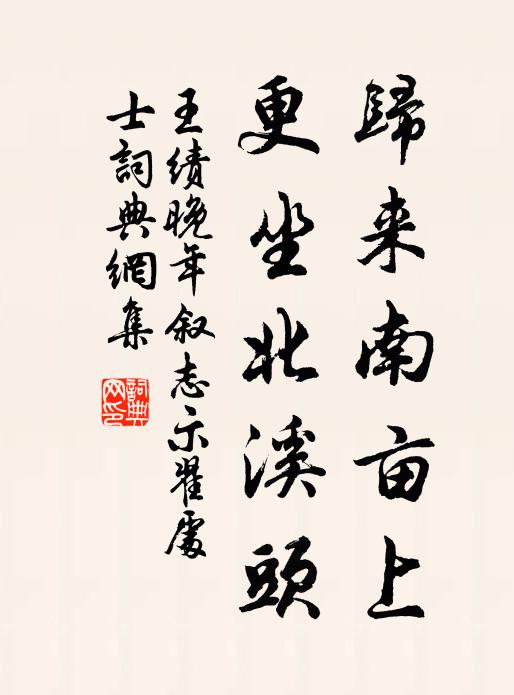 歸来南亩上
更坐北溪頭
王績晚年叙志示翟處
士詞典網集
詞典网印